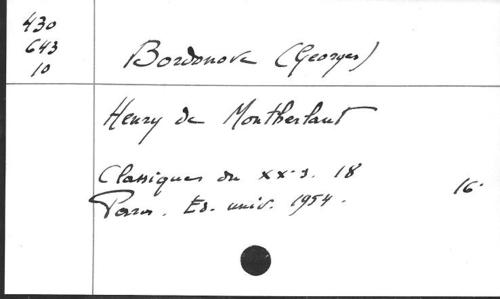 430
643
10
Bordonove (Georges)
Henry de Montherlant
Classiques du XXe s. 18
Paris. Ed. univ. 1954.
16°